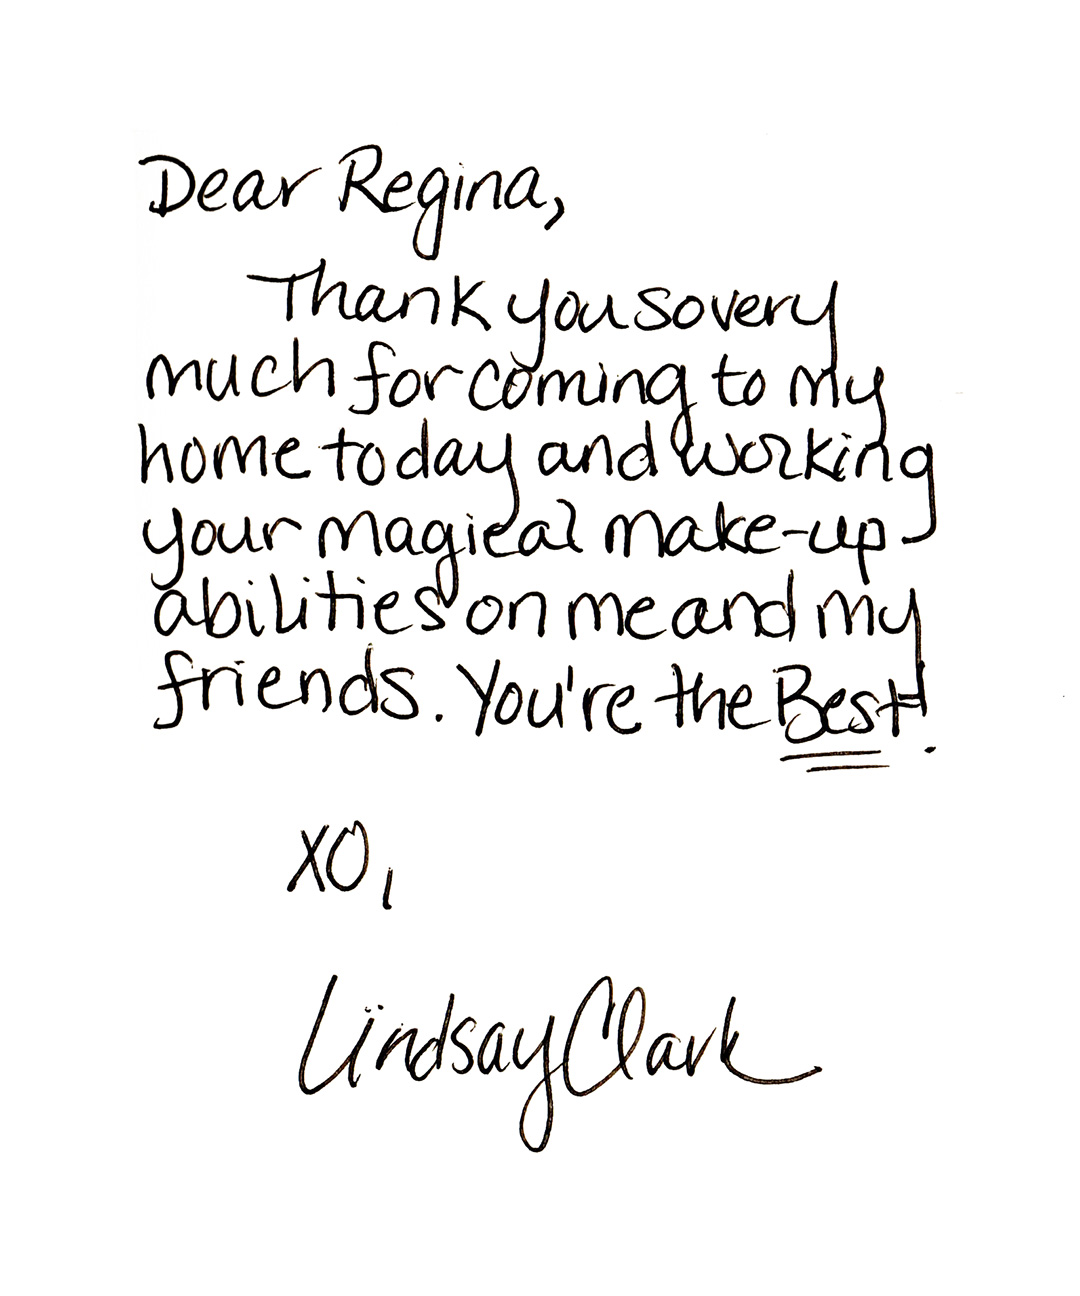 Dear Regina,
Thank you so very
much for coming to my
home today and working
your magical make-up
abilities on me and my
friends. You're the Best!
XO,
Lindsay Clark